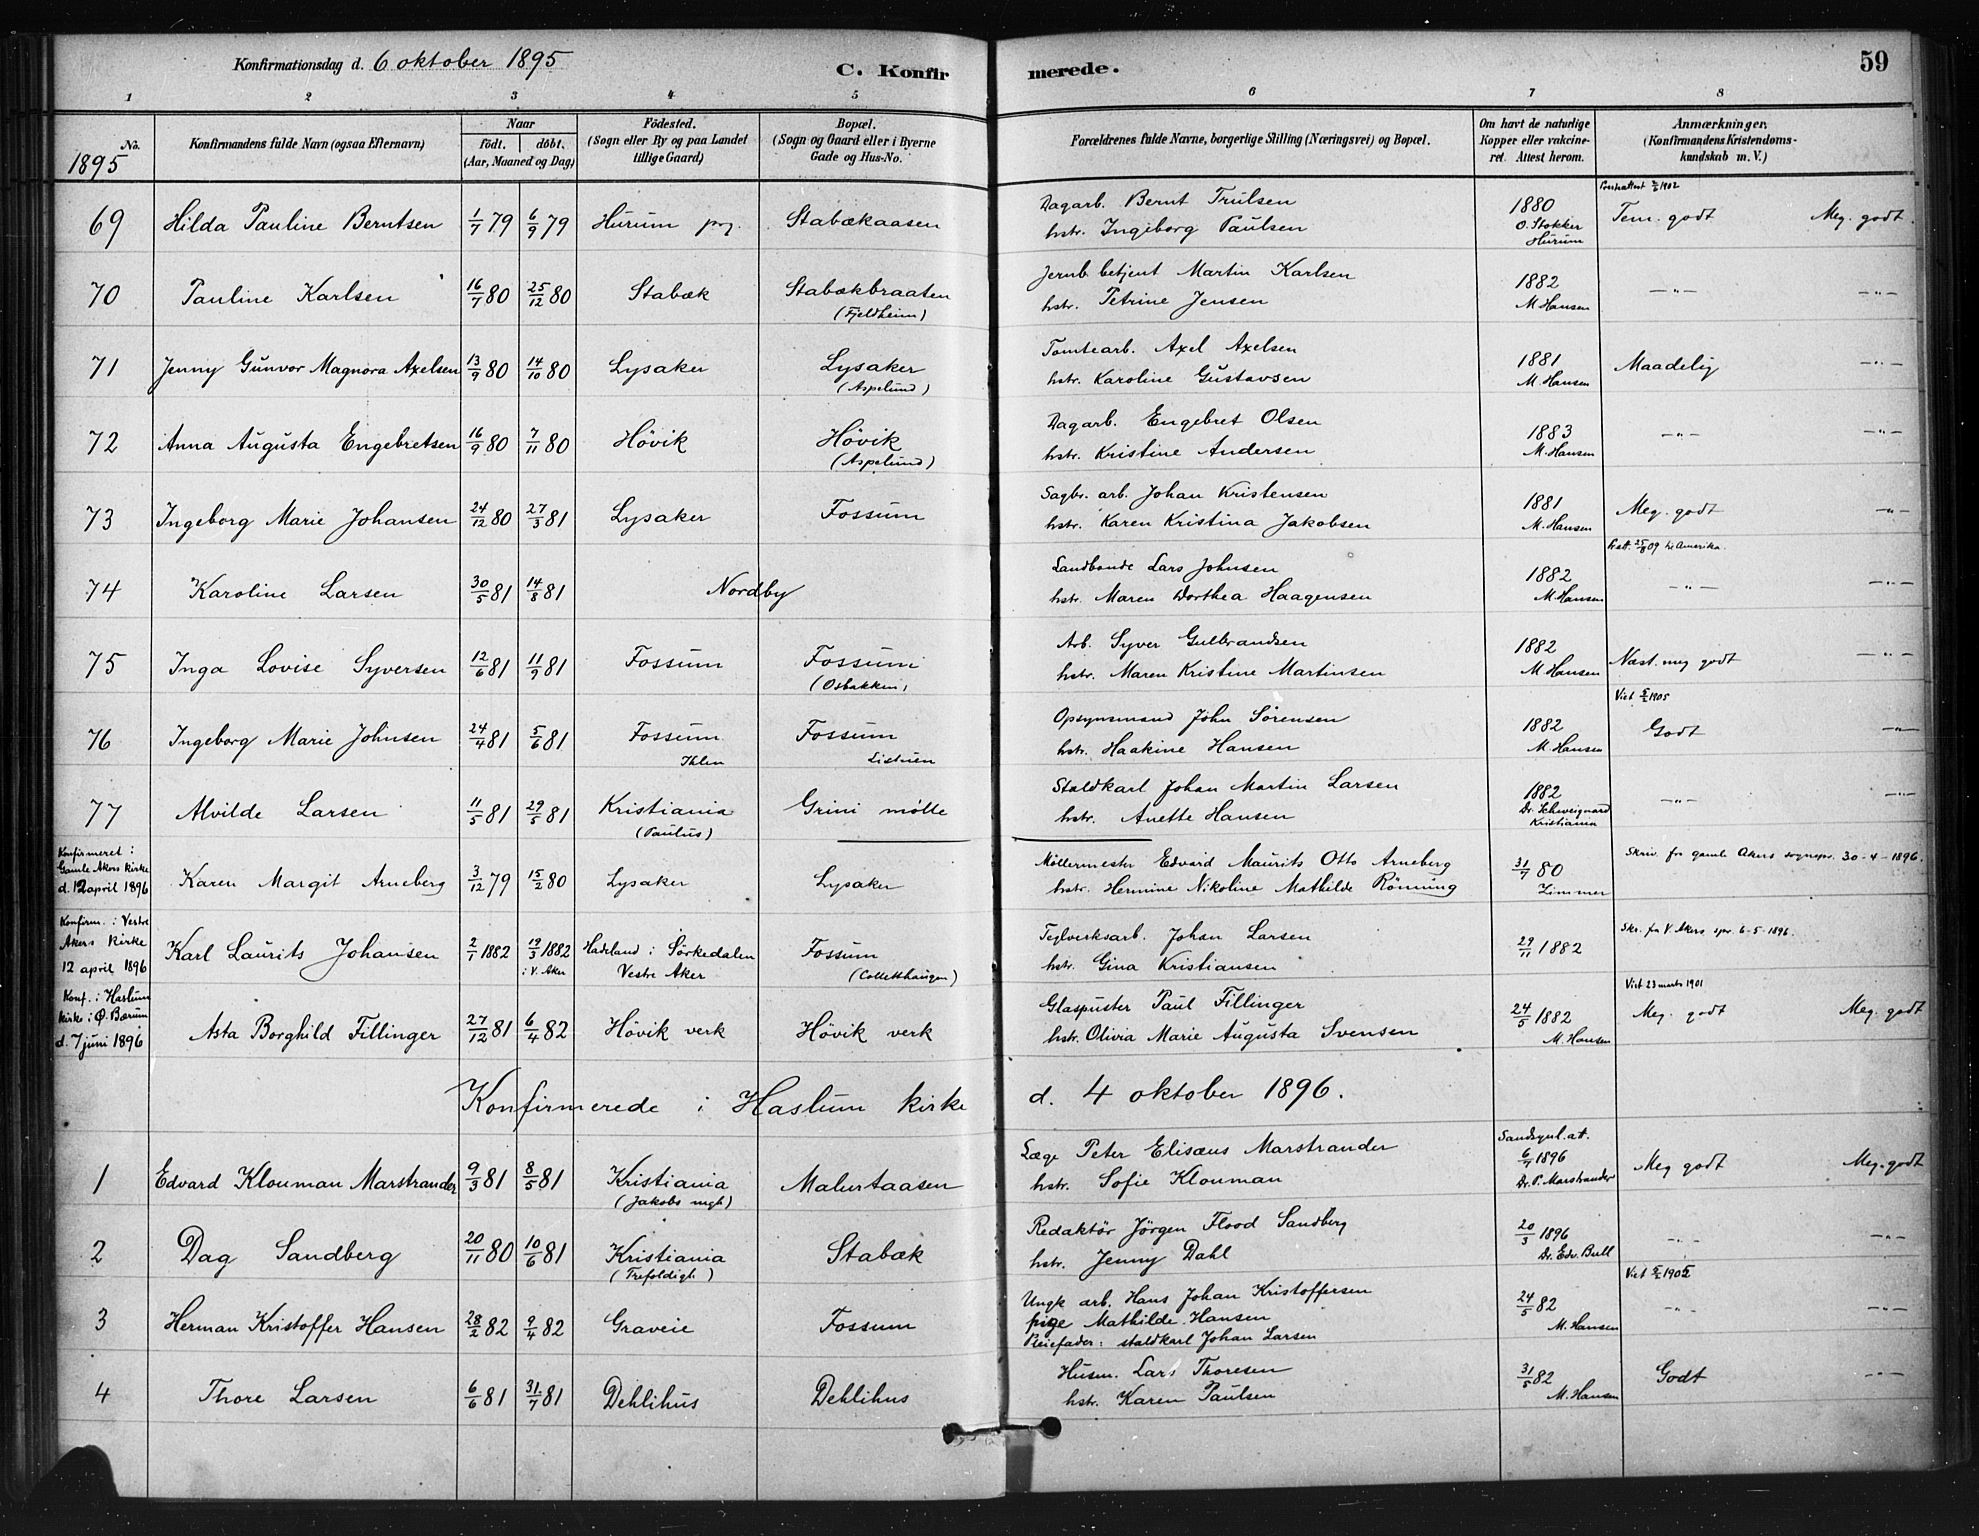 Konfirmationsdag d. 6 oktober 1895
C. Konfirmerede.
59
1 2 3 4 5 6 7 8
No.
1895
Konfirmandens fulde Navn (ogsaa Efternavn)
Naar
födt. döbt.
(Aar, Maaned og Dag)
Födested.
(Sogn eller By og paa Landet
tillige Gaard)
Bopæl.
(Sogn og Gaard eller i Byerne
Gade og Hus-No.
Forældrenes fulde Navne, borgerlige Stilling (Næringsvei) og Bopæl.
Om havt de naturlige
Kopper eller vaccine-
ret. Attest herom.
Anmærkninger.
(Konfirmandens Kristendoms-
kundskab m. V.)
69 Hilda Pauline Berntsen 1/7 79 6/9 79 Hurum prg. Stabækaasen
Dagarb. Bernt Trulsen
hstr. Ingeborg Paulsen
1880
O. Stokker
Hurum
1902
Tem. godt Meg. godt.
70 Pauline Karlsen 16/7 80 25/12 80 Stabæk Stabækbraaten
(Fjeldheim)
Jernb. betjent Martin Karlsen
hstr. Petrine Jensen
1882
M. Hansen
—"— —"—
71 Jenny Gunvor Magnora Axelsen 13/9 80 14/10 80 Lysaker Lysaker
(Aspelund)
Tomtearb. Axel Axelsen
hstr. Karoline Gustavsen
1881
M. Hansen
Maadelig —"—
72 Anna Augusta Engebretsen 16/9 80 7/11 80 Hövik Hövik
(Aspelund)
Dagarb. Engebret Olsen
hstr. Kristine Andersen
1883
M. Hansen
—"— —"—
73 Ingeborg Marie Johansen 24/12 80 27/3 81 Lysaker Fossum
Sagbr. arb. Johan Kristensen
hstr. Karen Kristina Jakobsen
1881
M. Hansen
Meg. godt —"—
74 Karoline Larsen 30/5 81 14/8 81 Nordby
Landbonde Lars Johnsen
hstr. Maren Dorthea Haagensen
1882
M. Hansen
25/8 09 til Amerika.
—"— —"—
75 Inga Lovise Syversen 12/6 81 11/9 81 Fossum Fossum
(Osbakken)
Arb. Syver Gulbrandsen
hstr. Maren Kristine Martinsen
1882
M Hansen
Næst. meg godt —"—
76 Ingeborg Marie Johnsen 24/4 81 5/6 81 Fossum Fossum
Ihlen Listuen
Opsynsmand John Sörensen
hstr. Haakine Hansen
1882
M. Hansen
Viet 1905
Godt —"—
77 Alvilde Larsen 11/5 81 29/5 81 Kristiania Grini mölle
(Paulus)
Staldkarl Johan Martin Larsen
hstr. Anette Hansen
1882
Dr. Schweigaard
Kristiania
—"— —"—
Konfirmeret i
Gamle Akers kirke
d. 12 april 1896
Karen Margit Arneberg 3/12 79 15/2 80 Lysaker Lysaker
Möllermester Edvard Maurits Otto Arneberg
hstr. Hermine Nikoline Mathilde Rönning
31/7 80
Zimmer
Skriv. fra gamle Akers sognepr. 30-4-1896.
Konfirm. i Vestre
Akers kirke
12 april 1896
Karl Laurits Johansen 2/1 1882 19/3 1882 Hadeland i Sörkedalen Fossum
i V. Aker Vestre Aker (Colletthaugen)
Teglverksarb. Johan Larsen
hstr. Gina Kristiansen
29/11 1882
Skr. fra V. Akers spr. 6-5-1896.
Konf. i Haslum
kirke i Ø. Bærum
d. 7 juni 1896
Asta Borghild Fillinger 27/12 81 6/4 82 Hövik verk Hövik verk
Glaspuster Paul Fillinger
hstr. Olivia Marie Augusta Svensen
24/5 1882
M. Hansen
Viet 23 marts 1901
Meg. godt Meg. godt
Konfirmerede i Haslum kirke d. 4 oktober 1896.
1 Edvard Klouman Marstrander 9/3 81 8/5 81 Kristiania Malurtaasen
(Jakobs mgh)
Læge Peter Elisæus Marstrander
hstr. Sofie Klouman
Sandsynl. att.
6/7 1896
Dr. P. Marstrander
Meg godt Meg. godt
2 Dag Sandberg 20/11 80 10/6 81 Kristiania Stabæk
(Trefoldigh.)
Redaktör Jörgen Flood Sandberg
hstr. Jenny Dahl
20/3 1896
Dr. Edv. Bull
—"— —"—
3 Herman Kristoffer Hansen 28/2 82 9/4 82 Graveie Fossum
Ungk. arb. Hans Johan Kristoffersen
pige Mathilde Hansen
Pleiefader: staldkarl Johan Larsen
24/5 82
M. Hansen
Viet 1905
—"— —"—
4 Thore Larsen 6/6 81 31/7 81 Dehlihus Dehlihus
Husm. Lars Thoresen
hstr. Karen Paulsen
31/5 82
M. Hansen
Godt —"—